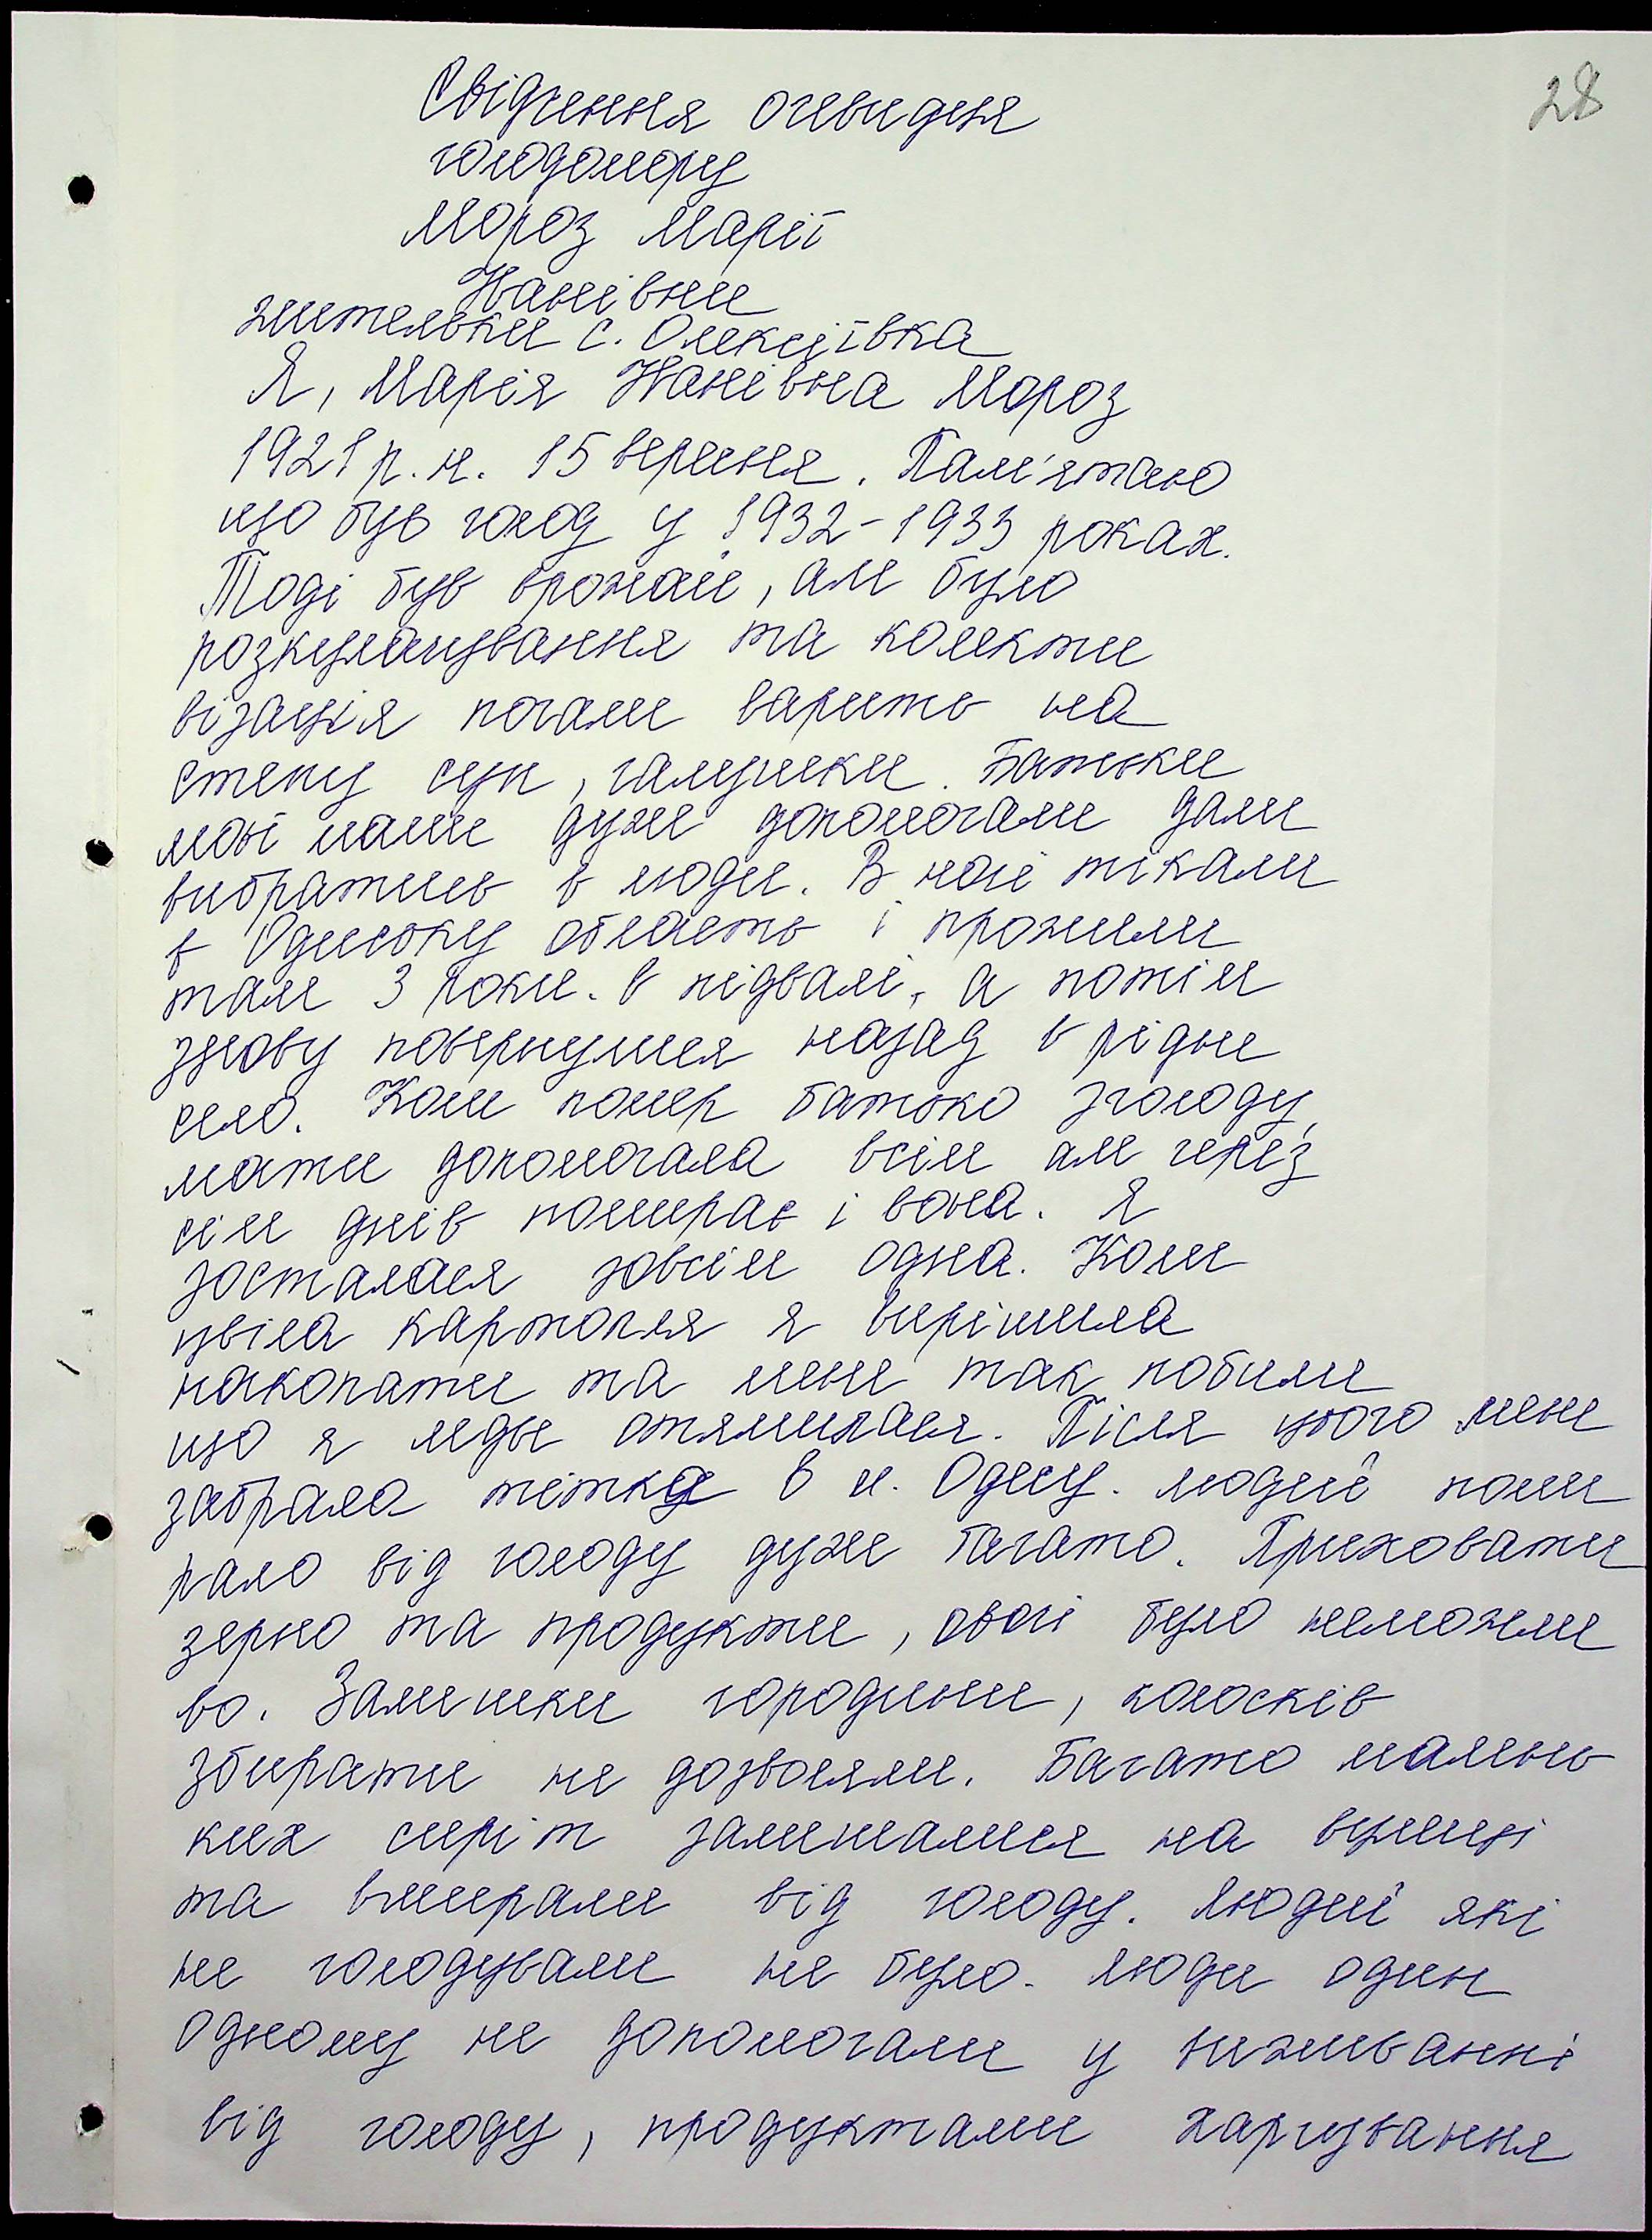 28
Свідчення очевидця
голодомору
Мороз Марії
Іванівни
жительки с. Олексіївка
Я, Марія Іванівна Мороз
1921 р.н. 15 вересня. Пам'ятаю
що був голод у 1932-1933 роках.
Тоді був врожай, але було
розкулачування та колекти
візація почали варить на
степу суп, галушки. Батьки
мої нами дуже допомогали дали
вибратись в люди. В ночі тікали
в Одеську область і прожили
там 3 роки. в підвалі, а потім
знову повернулися назад в рідне
село. Коли помер батько зголоду,
мати допомогала всім але через
сім днів помирає і вона. Я
зосталася зовсім одна. Коли
цвіла картопля я вирішила
накопати та мене так побили
що я ледве отямилася. Після цього мене
забрала тітка в м. Одесу. людей поми
рало від голоду дуже багато. Приховати
зерно та продукти, овочі було неможли
во. Залишки городини, колосків
збирати не дозволяли. Багато малень
ких сиріт залишалися на вулиці
та вмирали від голоду. Людей які
не голодували не було. Люди один
одному не допомогали у виживанні
від голоду, продуктами харчування